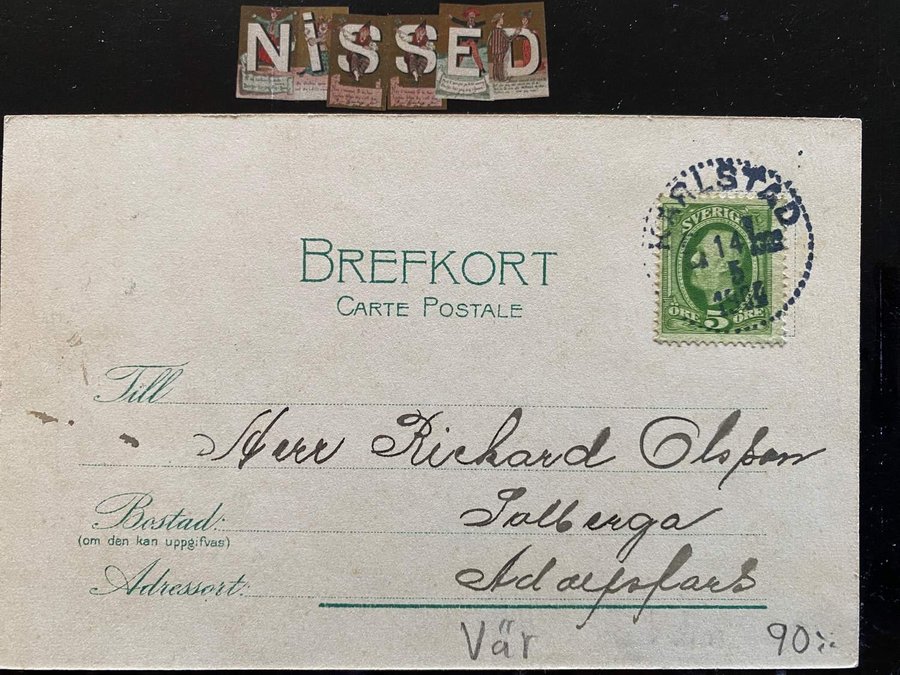 NiSSED
BREFKORT
CARTE POSTALE
KARLSTAD
14
5
SVERIGE
ÖRE 5 ÖRE
Till
Herr Richard Olsson
Bostad:
(om den kan uppgifvas)
Solberga
Adressort:
Adolfsfors
Vär
90:-